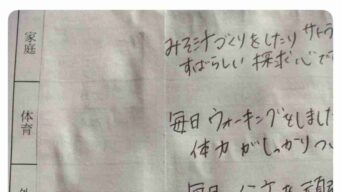 家庭
みそ汁づくりをしたり サトウ
すばらしい 探求心で
体育
毎日 ウォーキングをしました
体力 がしっかりつ
外
毎日